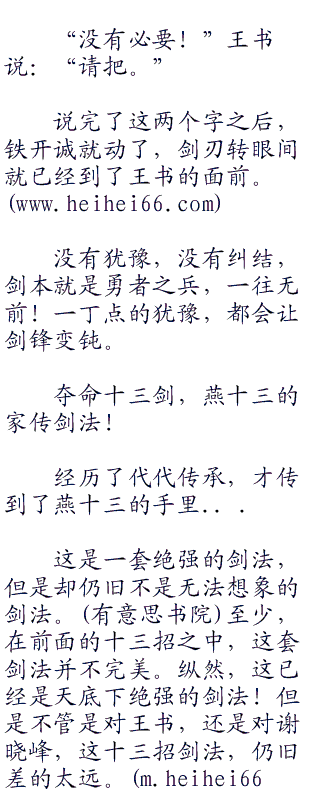 “没有必要！”王书
说：“请把。”
说完了这两个字之后，
铁开诚就动了，剑刃转眼间
就已经到了王书的面前。
(www.heihei66.com)
没有犹豫，没有纠结，
剑本就是勇者之兵，一往无
前！一丁点的犹豫，都会让
剑锋变钝。
夺命十三剑，燕十三的
家传剑法！
经历了代代传承，才传
到了燕十三的手里...
这是一套绝强的剑法，
但是却仍旧不是无法想象的
剑法。(有意思书院)至少，
在前面的十三招之中，这套
剑法并不完美。纵然，这已
经是天底下绝强的剑法！但
是不管是对王书，还是对谢
晓峰，这十三招剑法，仍旧
差的太远。(m.heihei66